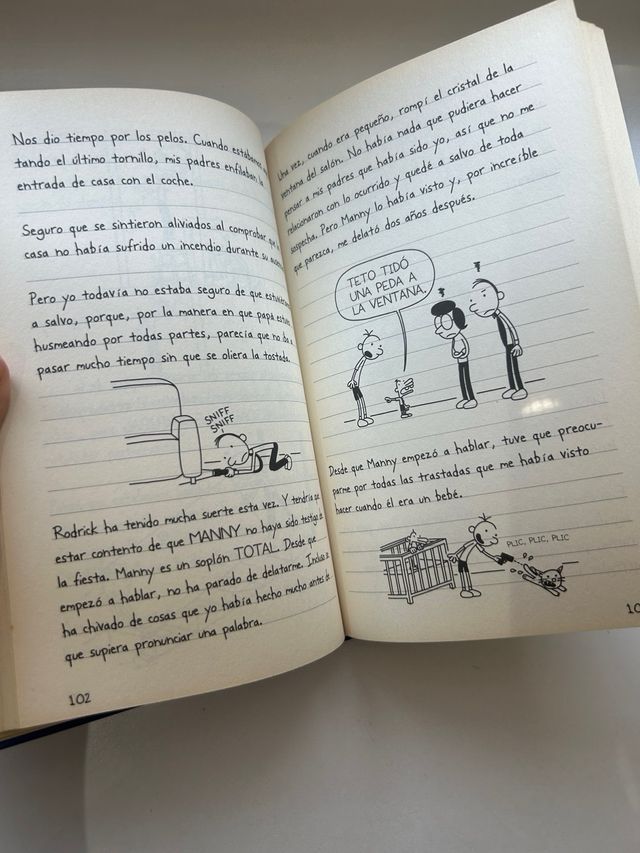 Nos dio tiempo por los pelos. Cuando
tando el último tornillo, mis padres enfilaban la
entrada de casa con el coche.
Seguro que se sintieron aliviados al comprobar que
casa no había sufrido un incendio durante su
Pero yo todavía no estaba seguro de que
a salvo, porque, por la manera en que papá
husmeando por todas partes, parecía que no
pasar mucho tiempo sin que se oliera la tostada.
SNIFF
SNIFF
Rodrick ha tenido mucha suerte esta vez. Y tendría que
estar contento de que MANNY no haya sido testigo
la fiesta. Manny es un soplón TOTAL. Desde que
empezó a hablar, no ha parado de delatarme. Incluso
ha chivado de cosas que yo había hecho mucho antes de
que supiera pronunciar una palabra.
102
Una vez, cuando era pequeño, rompí el cristal de la
ventana del salón. No había nada que pudiera hacer
pensar a mis padres que había sido yo, así que no me
relacionaron con lo ocurrido y quedé a salvo de toda
sospecha. Pero Manny lo había visto y, por increíble
que parezca, me delató dos años después.
TETO TIDÓ
UNA PEDA A
LA VENTANA.
Desde que Manny empezó a hablar, tuve que preocu-
parme por todas las trastadas que me había visto
hacer cuando él era un bebé.
PLIC, PLIC, PLIC